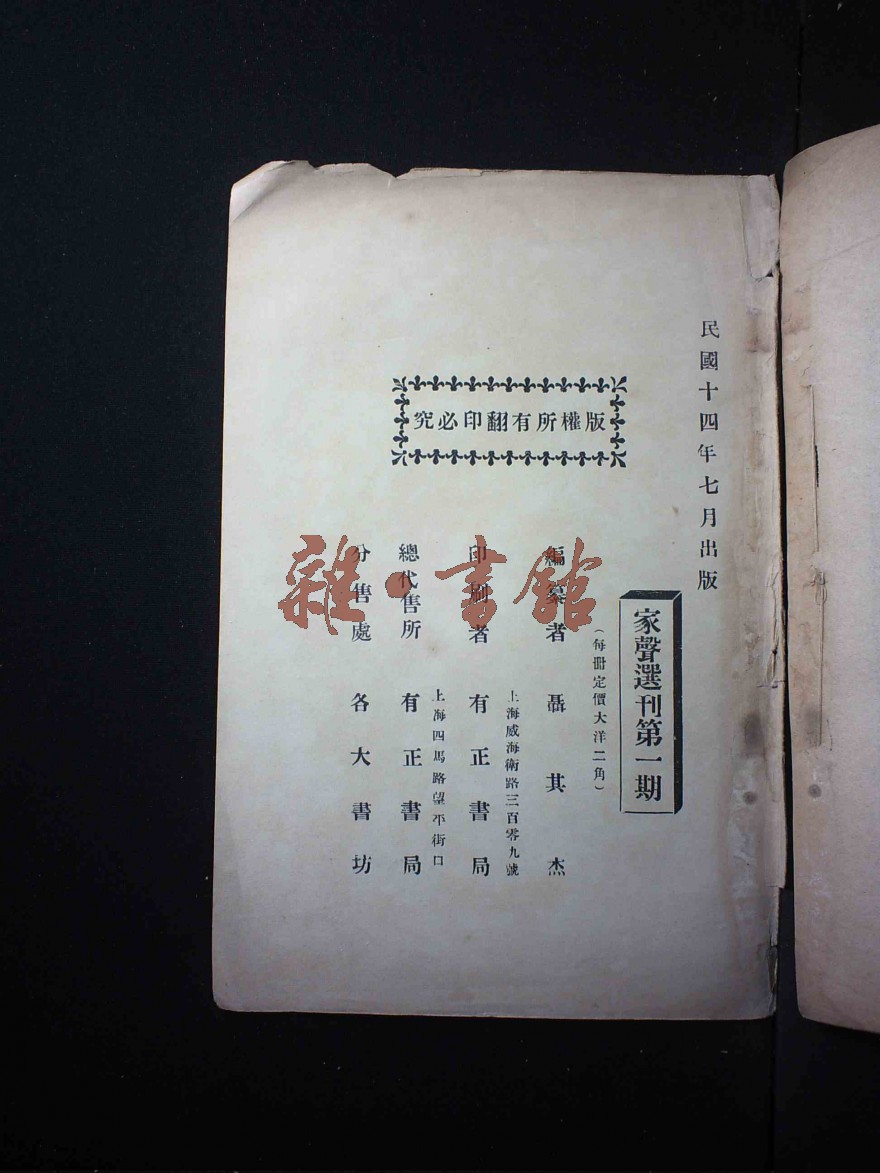 民國十四年七月出版
家聲選刊第一期
（每冊定價大洋二角）
版權所有翻印必究
編纂者 聶其杰
上海威海衛路三百零九號
印刷者 有正書局
上海四馬路望平街口
總代售所 有正書局
分售處 各大書坊
雜·書館